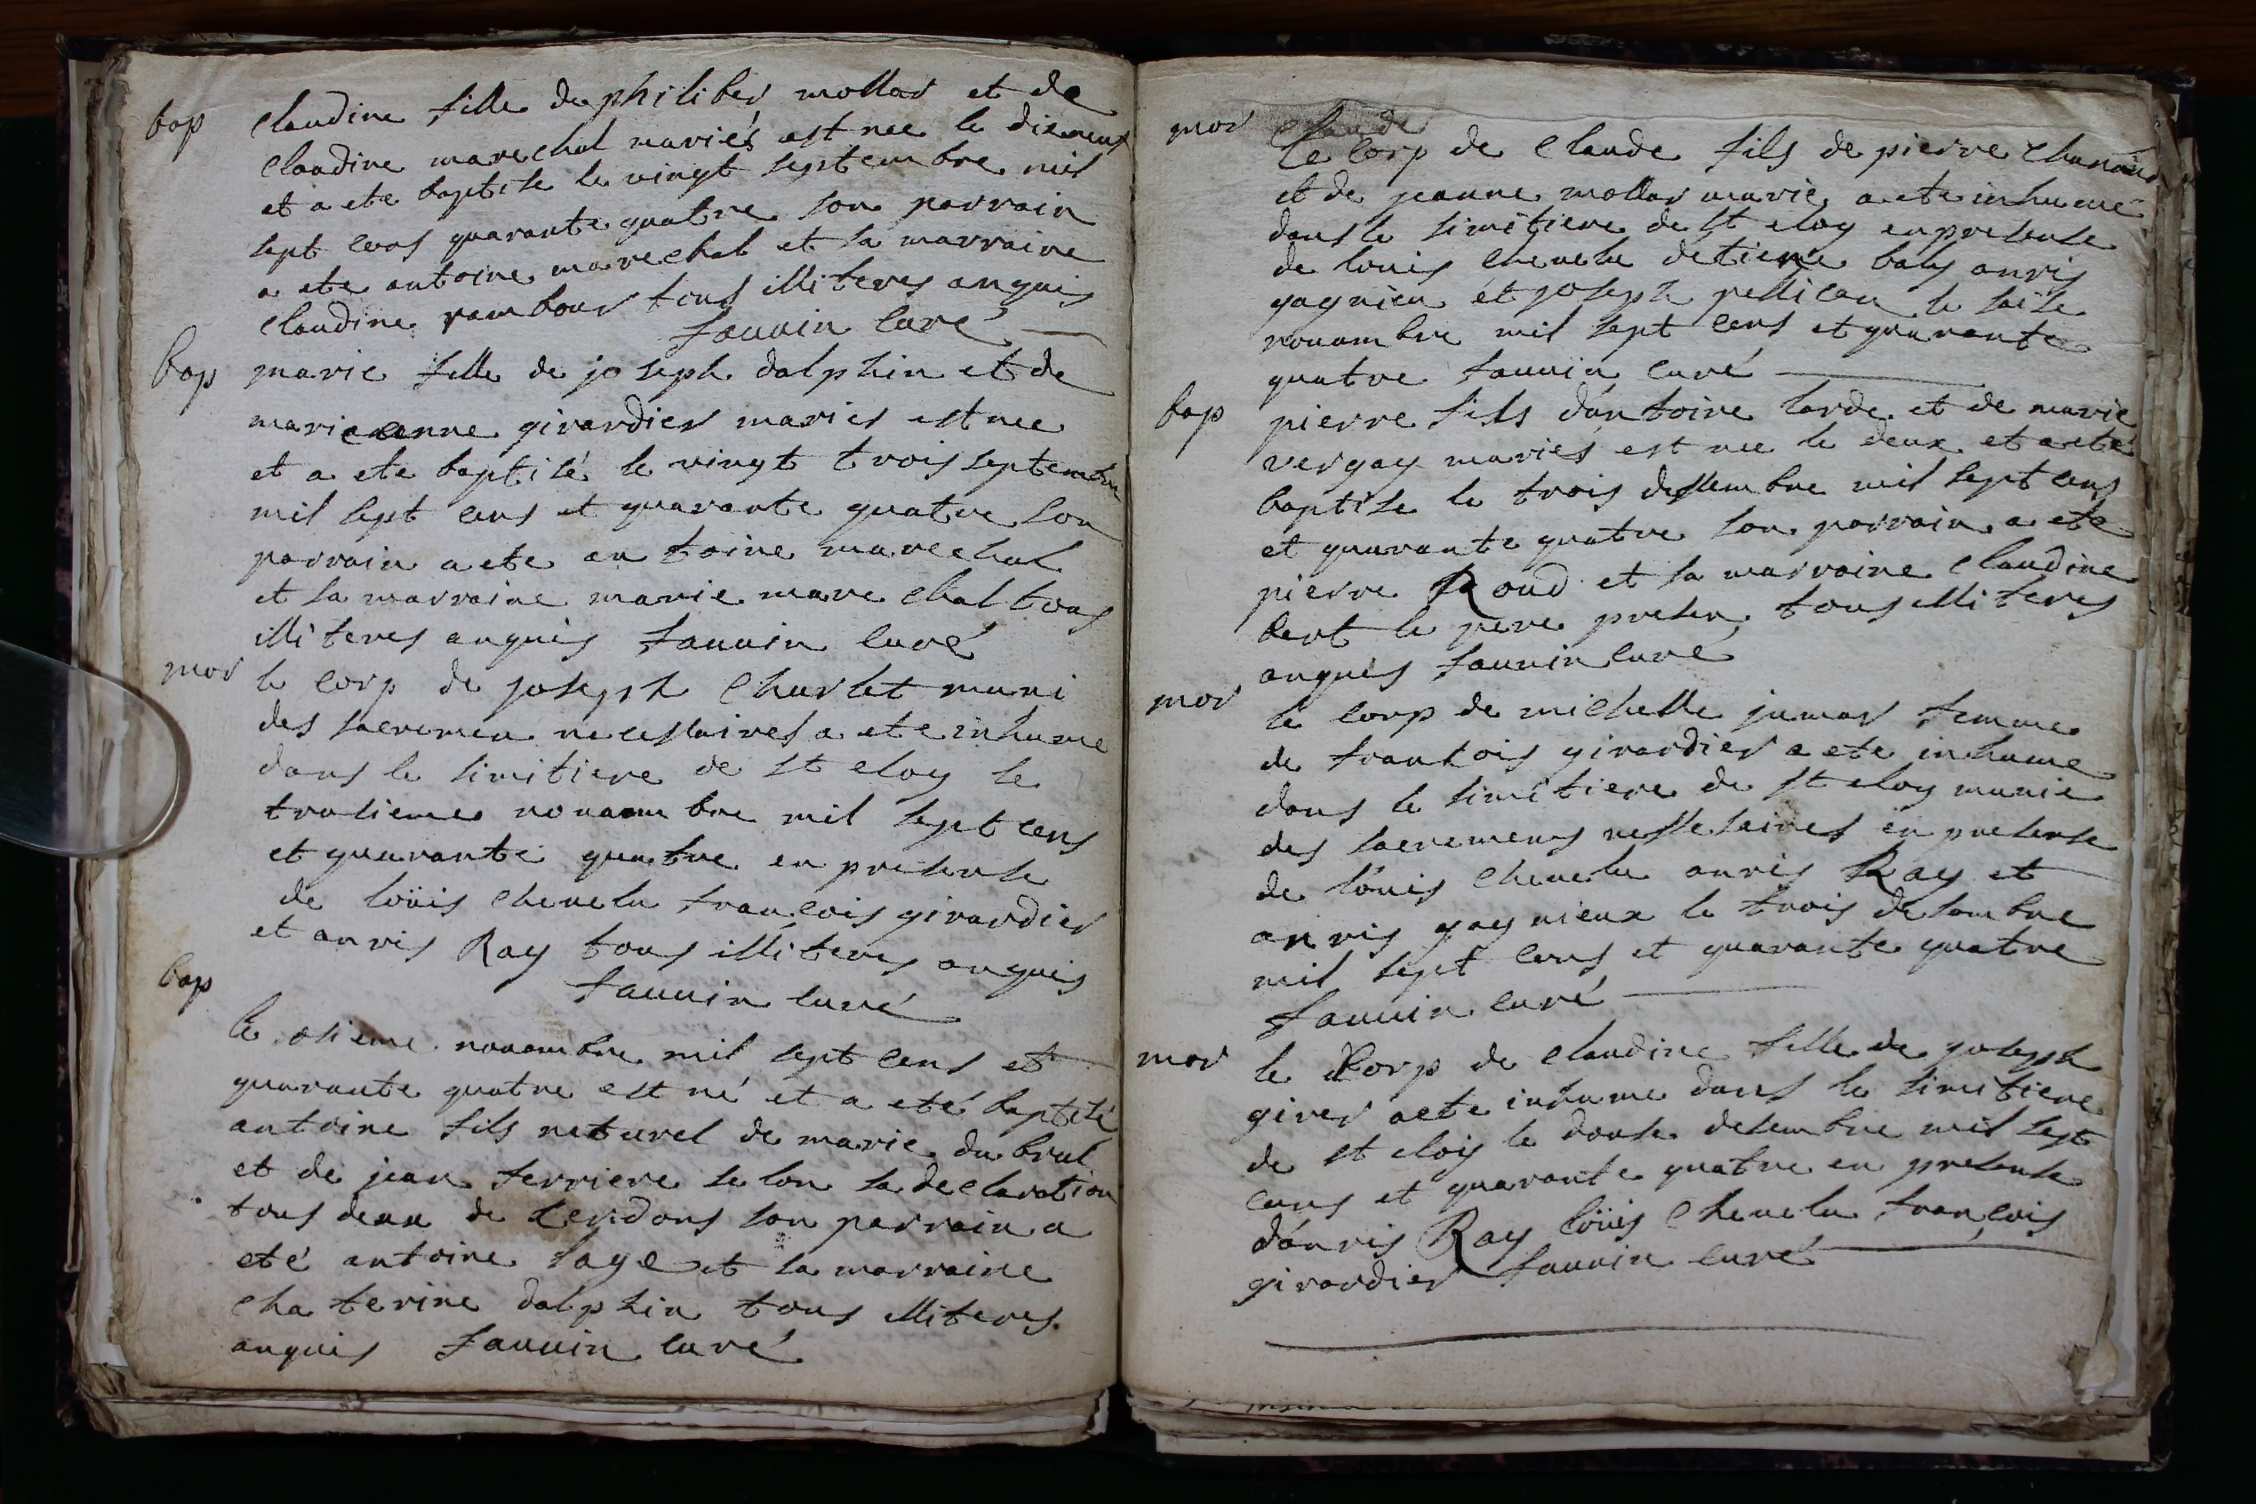 bap claudine fille de philiber mollar et de
claudine marechal mariés est nee le disneuf
et a ete baptise le vingt septembre mil
sept cens quarante quatre son parrain
a ete antoine marechal et sa marraine
claudine rambour tous illiteres anquis
fauuin curé
bap marie fille de joseph dalphin et de
marieanne girardier maries est nee
et a ete baptisé le vingt trois septembre
mil sept cens et quarante quatre son
parrain a ete antoine marechal
et sa marraine marie marechal tous
illiteres anquis fauuin curé
mor le corp de joseph charlet muni
des sacremen necessaires a ete inhume
dans le simitiere de st eloy le
trosieme nouambre mil sept cens
et quarante quatre en presense
de loüis cheuelu françois girardier
et anris Ray tous illiteres anquis
fauuin curé
bap
le osieme nouambre mil sept cens et
quarante quatre est né et a eté baptisé
antoine fils neturel de marie du brul
et de jean ferriere selon sa declaration
tous deux de son parrain a
eté antoine sage et la marraine
chaterine dalphin tous illiteres
anquis fauuin curé
mor claude
le corp de claude fils de pierre
et de jeanne mollar marie a ete inhumé
dans le simitiere de st eloy en presense
de louis cheuelu anris
gagnieu et joseph pellican le saise
nouambre mil sept cens et quarante
quatre fauuin curé
bap pierre fils dantoine larde et de marie
vergay mariés est nee le deux et a eté
baptise le trois dessembre mil sept cens
et quarante quatre son parrain a ete
pierre Roud et sa marraine claudine
le pere presen tous illiteres
anques fauuin curé
mor le corp de michelle jumar femme
de fransois girardier a ete inhume
dans le simitiere de st eloy munie
des sacremens nessesaires en presense
de louis cheuelu anris Ray et
anris gagnieux le trois desambre
mil sept cens et quarante quatre
fauuin curé
mor le corp de claudine fille de joseph
girer a ete inhume dans le simitiere
de st eloy le douse desembre mil sept
cens et quarante quatre en presense
d'anris Ray loüis cheuelu françois
girardier fauuin curé